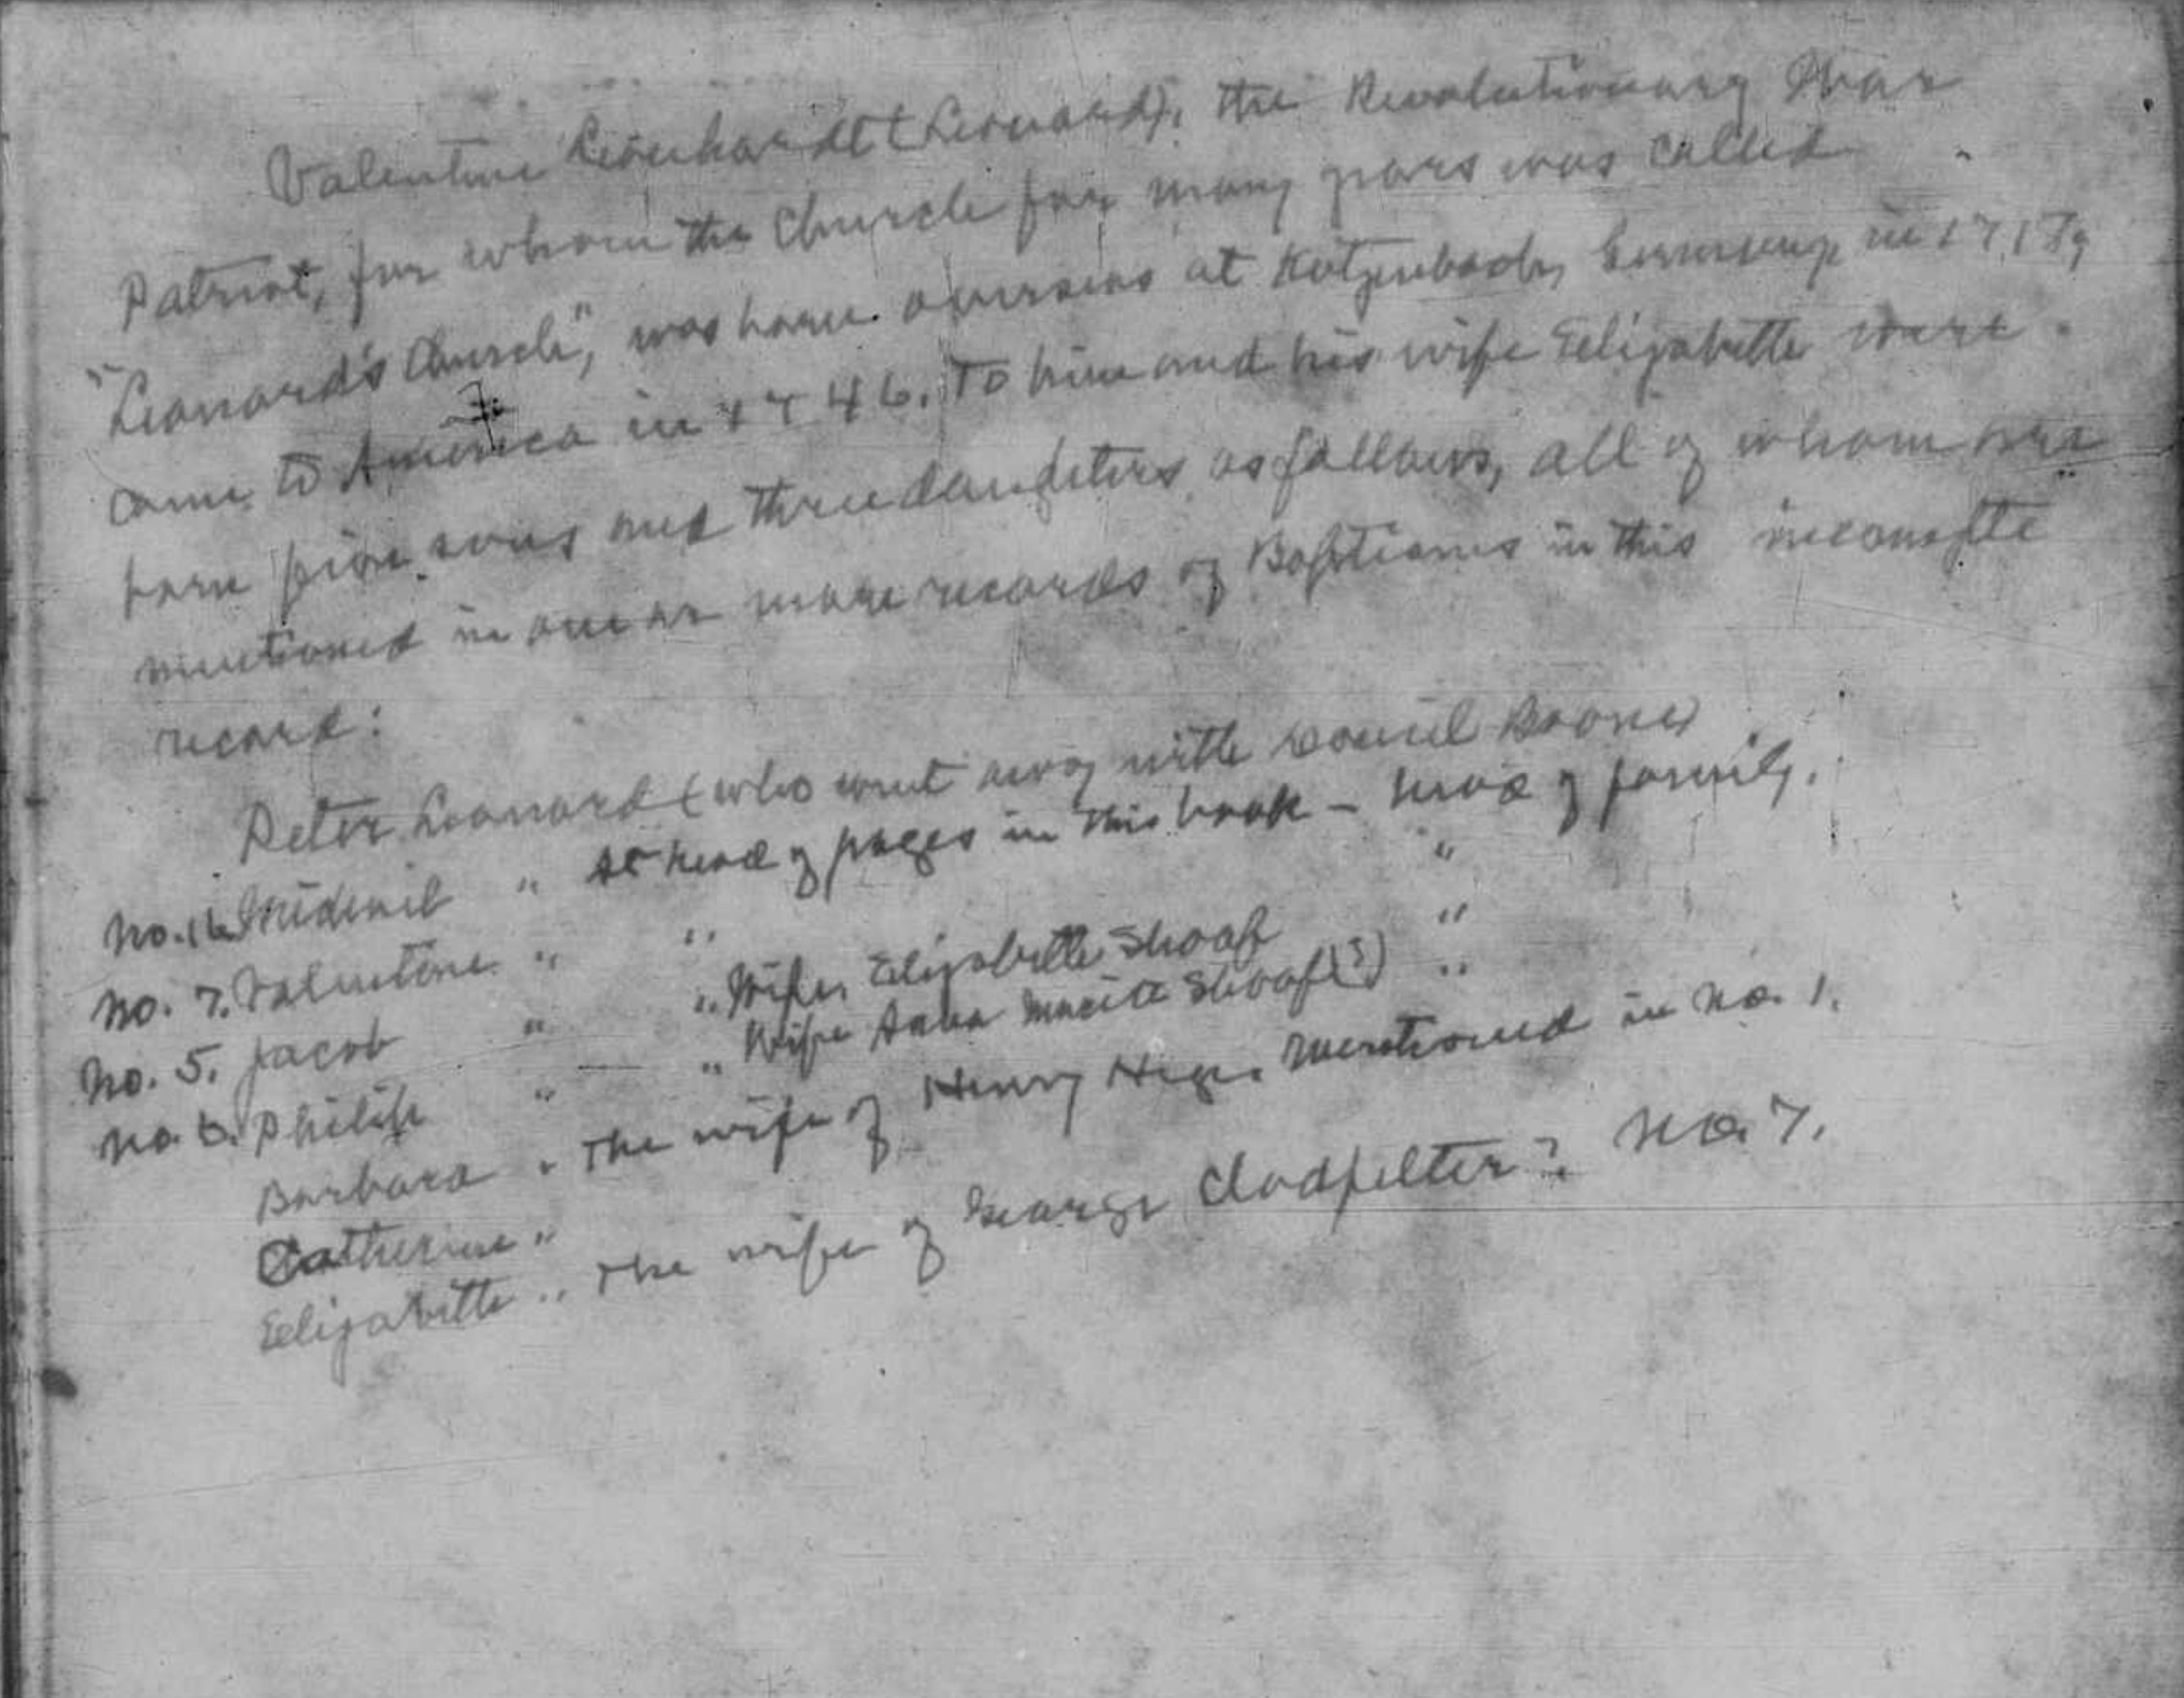 Valentine Leonhardt (Leonard), the Revolutionary War
Patriot, for whom the Church for many years was called
"Leonard's Church", was born overseas at Katzenbach, Germany in 1718,
came to America in 1746. To him and his wife Elizabeth were
born five sons and three daughters as follows, all of whom are
mentioned in one or more records of Baptisms in this incomplete
record:
Peter Leonard (who went away with Daniel Boone)
No. 16. " at head of pages in this book - head of family.
No. 7. Valentine " " "
No. 5. Jacob " " Wife, Elizabeth Shoaf "
No. 6. Philip " " Wife Anna Shoaf (?) "
Barbara " The wife of Henry mentioned in No. 1.
Catherine "
Elizabeth " The wife of George Clodfelter? No. 7.